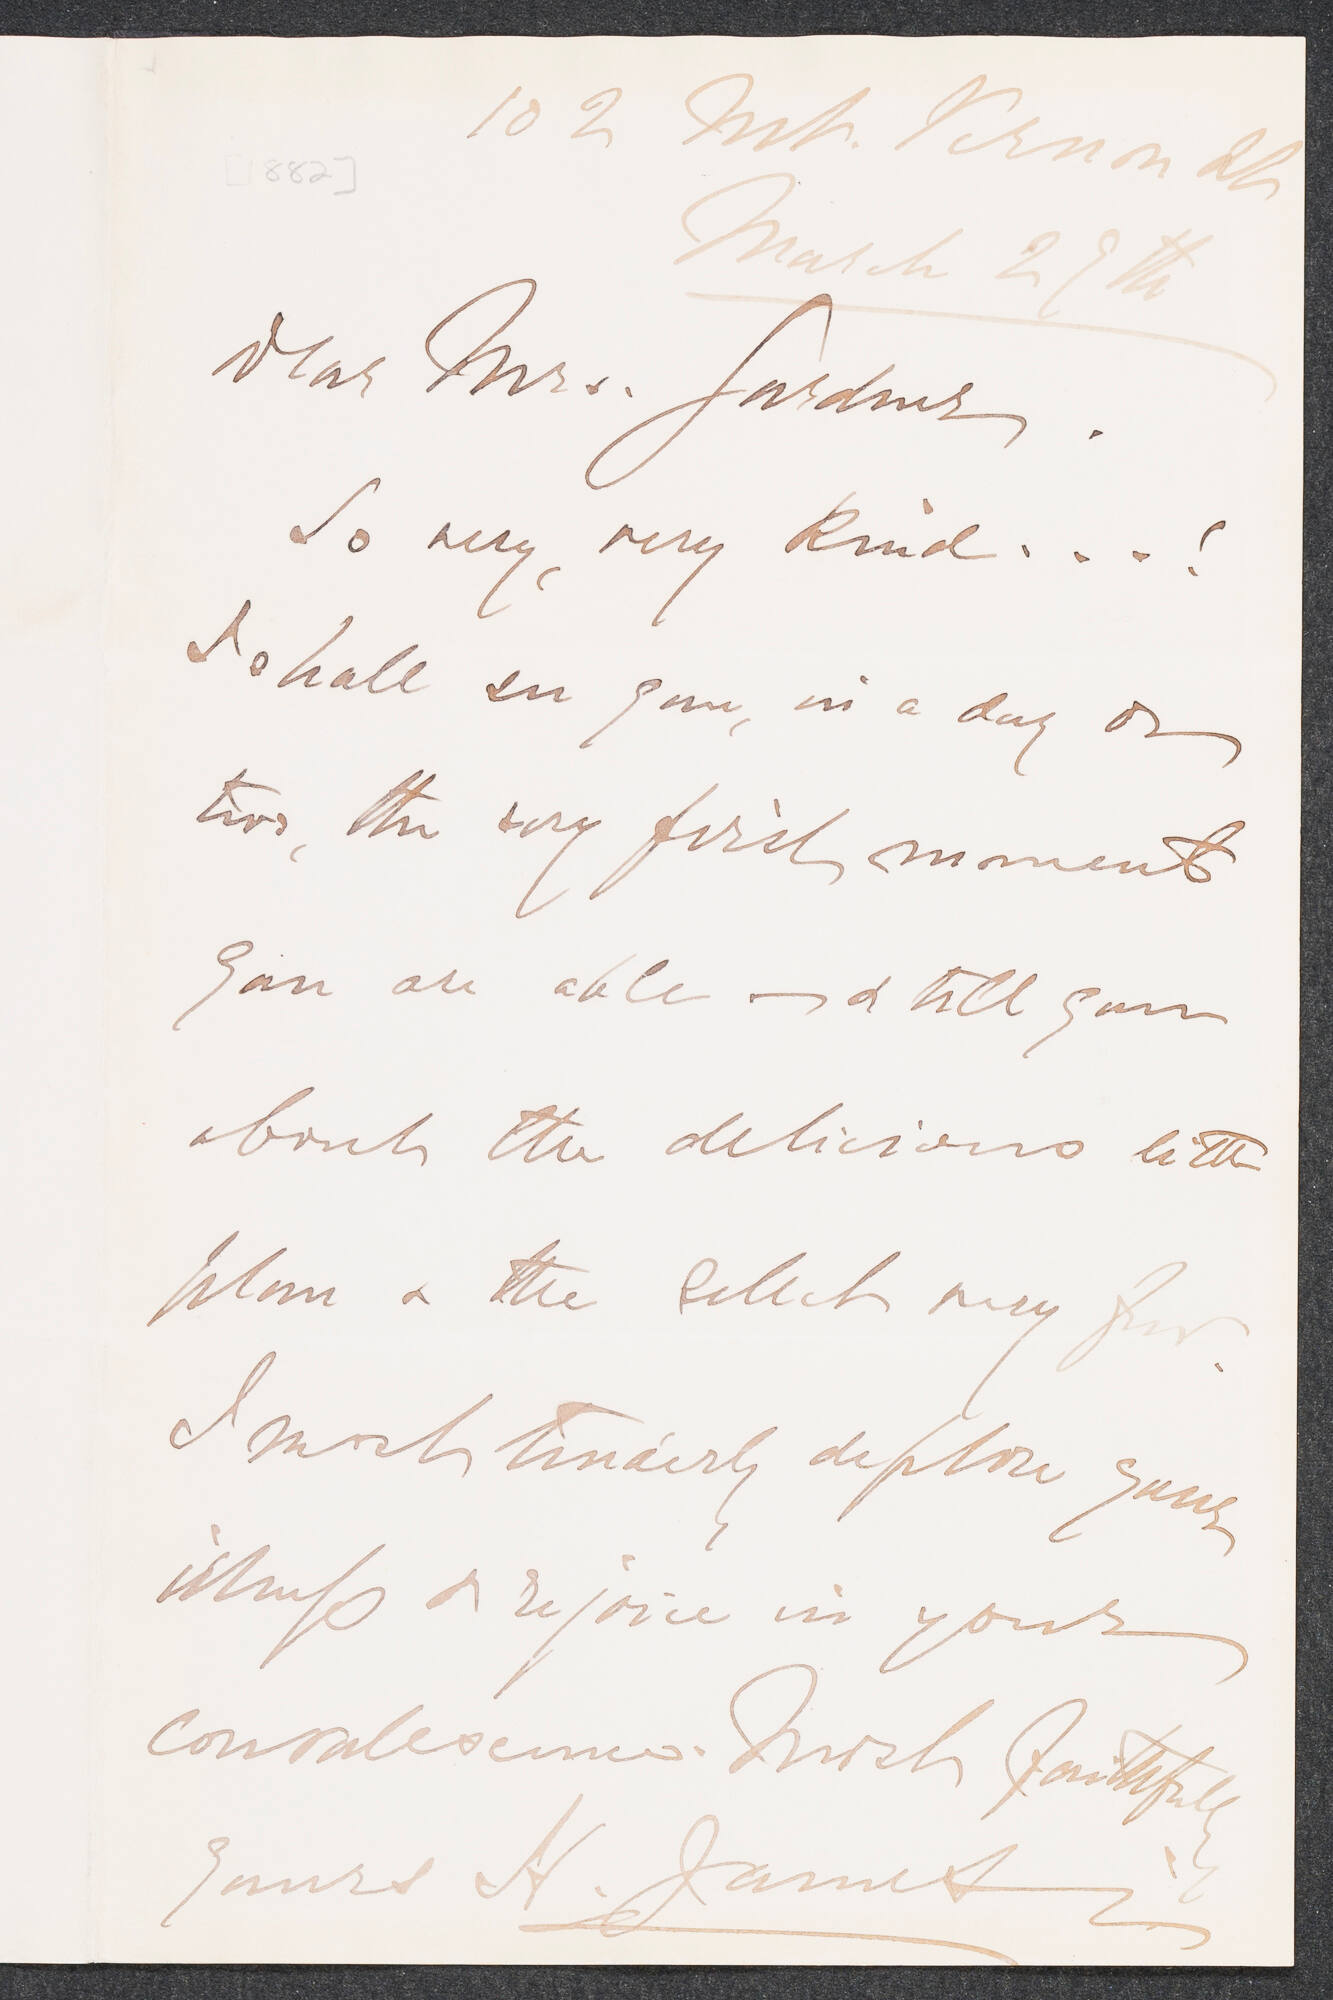 102 Mt. Vernon St
[1882]
March 29th
Dear Mrs. Gardner.
So very, very kind . . . !
I shall see you, in a day or
two, the very first moment
you are able — & tell you
about the delicious little
plan & the select very few.
I most tenderly deplore your
illness & rejoice in your
convalescence. Most faithfully
yours H. James